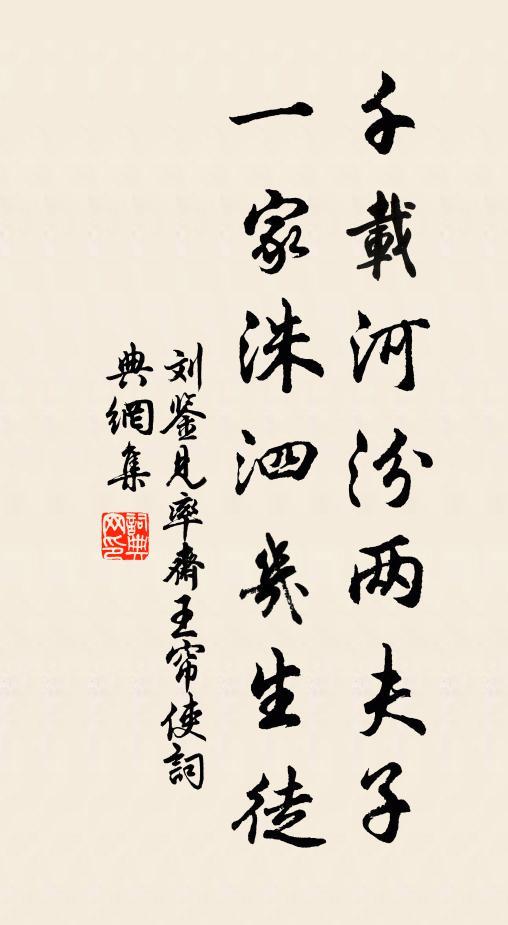 千載河汾两夫子
一家洙泗幾生徒
刘鉴見率齋王帘使詞
典網集
詞典網印